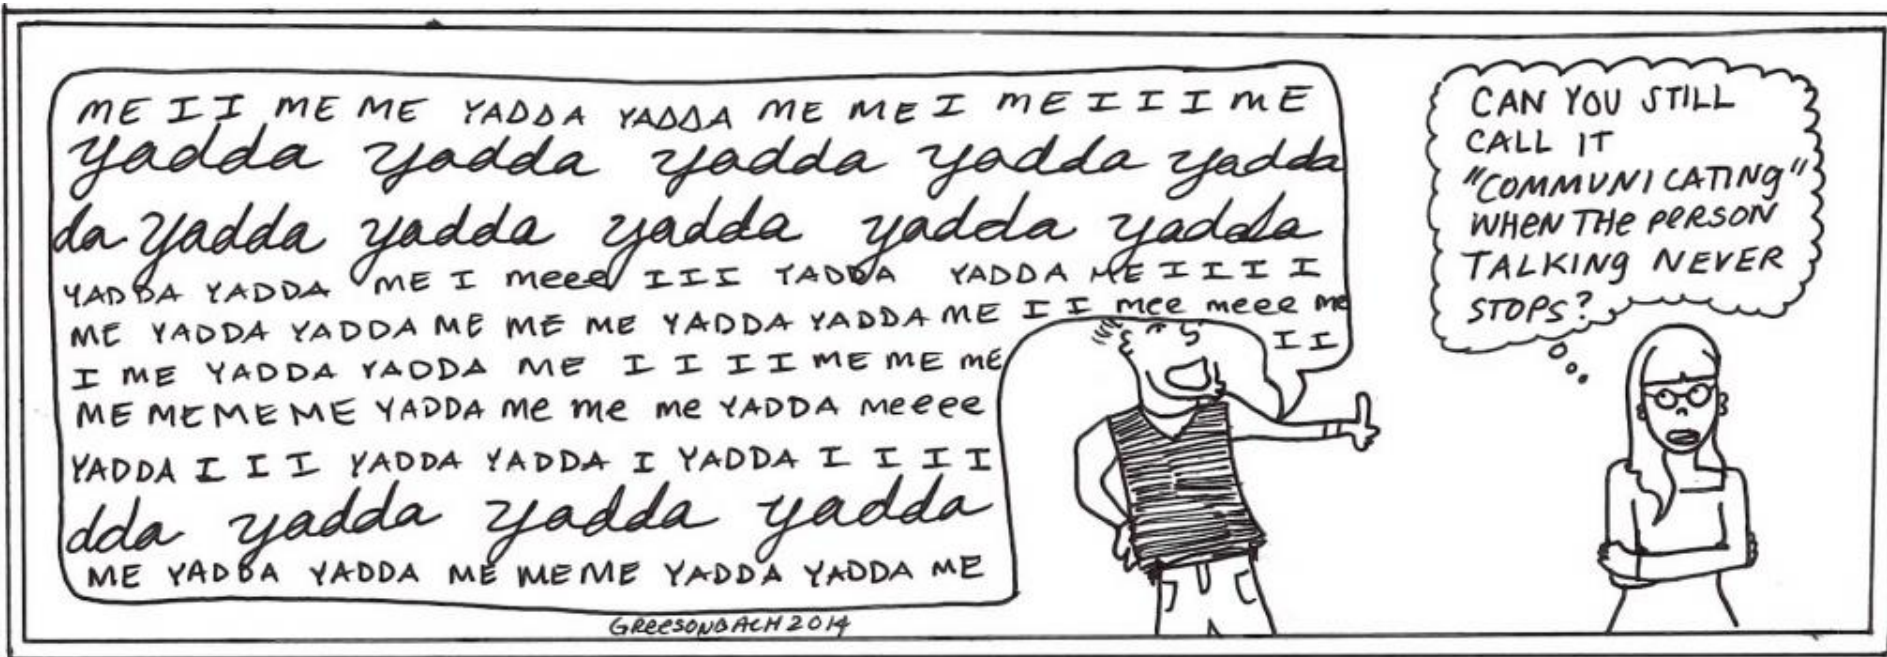 ME I I ME ME YADDA YADDA ME ME I ME I I I ME
yadda yadda yadda yadda yadda
da yadda yadda yadda yadda yadda
YADDA YADDA ME I meee III YADDA YADDA ME I I I I
ME YADDA YADDA ME ME ME YADDA YADDA ME I I mee meee me
I ME YADDA YADDA ME I I I I ME ME ME
I I
ME ME ME ME YADDA me me me YADDA Meeee
YADDA I I I YADDA YADDA I YADDA I I I I
dda yadda yadda yadda
ME YADDA YADDA ME ME ME YADDA YADDA ME
CAN YOU STILL
CALL IT
"COMMUNICATING"
WHEN THE PERSON
TALKING NEVER
STOPS?
GREESONBACH 2014